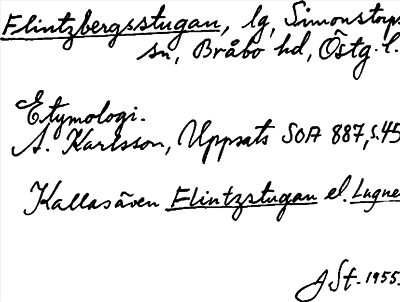 Flintzbergsstugan, lg, Simonstorps
sn, Bråbo hd, Östg. l.
Etymologi.
A. Karlsson, Uppsats SOA 887, s. 45
Kallas även Flintzstugan el. Lugne
JSt. 1955.